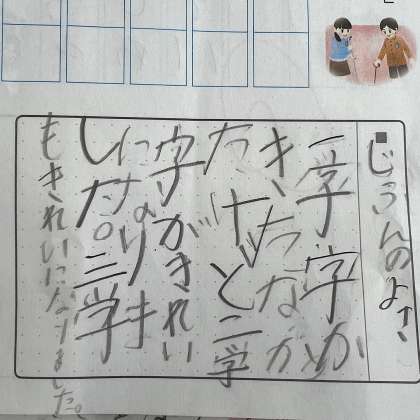 ■じぶんのよさ
一学字が
きたなか
たけど二学
字がきれい
になりま
した。三学
もきれいになりました。